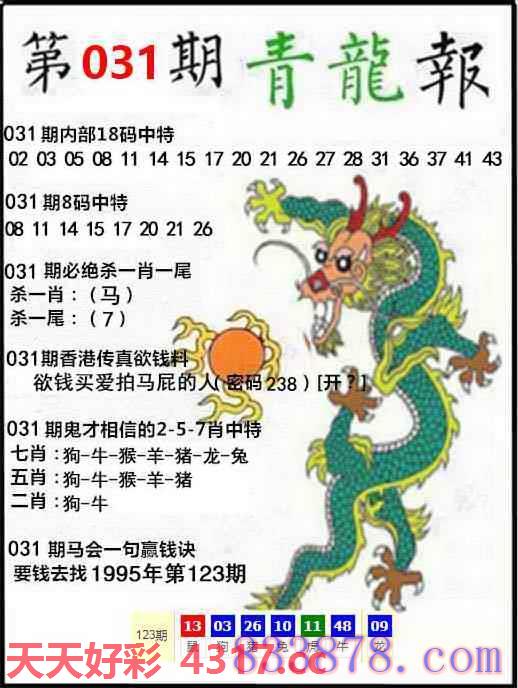 第031期 青龍報
031期内部18码中特
02 03 05 08 11 14 15 17 20 21 26 27 28 31 36 37 41 43
031期8码中特
08 11 14 15 17 20 21 26
031 期必绝杀一肖一尾
杀一肖：（马）
杀一尾：（7）
031期香港传真欲钱料
欲钱买爱拍马屁的人(密码238）[开？]
031期鬼才相信的2-5-7肖中特
七肖：狗-牛-猴-羊-猪-龙-兔
五肖：狗-牛-猴-羊-猪
二肖：狗-牛
031 期马会一句赢钱诀
要钱去找1995年第123期
123期 13 03 26 10 11 48 09
鼠 狗 猪 兔 虎 牛 龙
天天好彩 4317.cc
833878.com